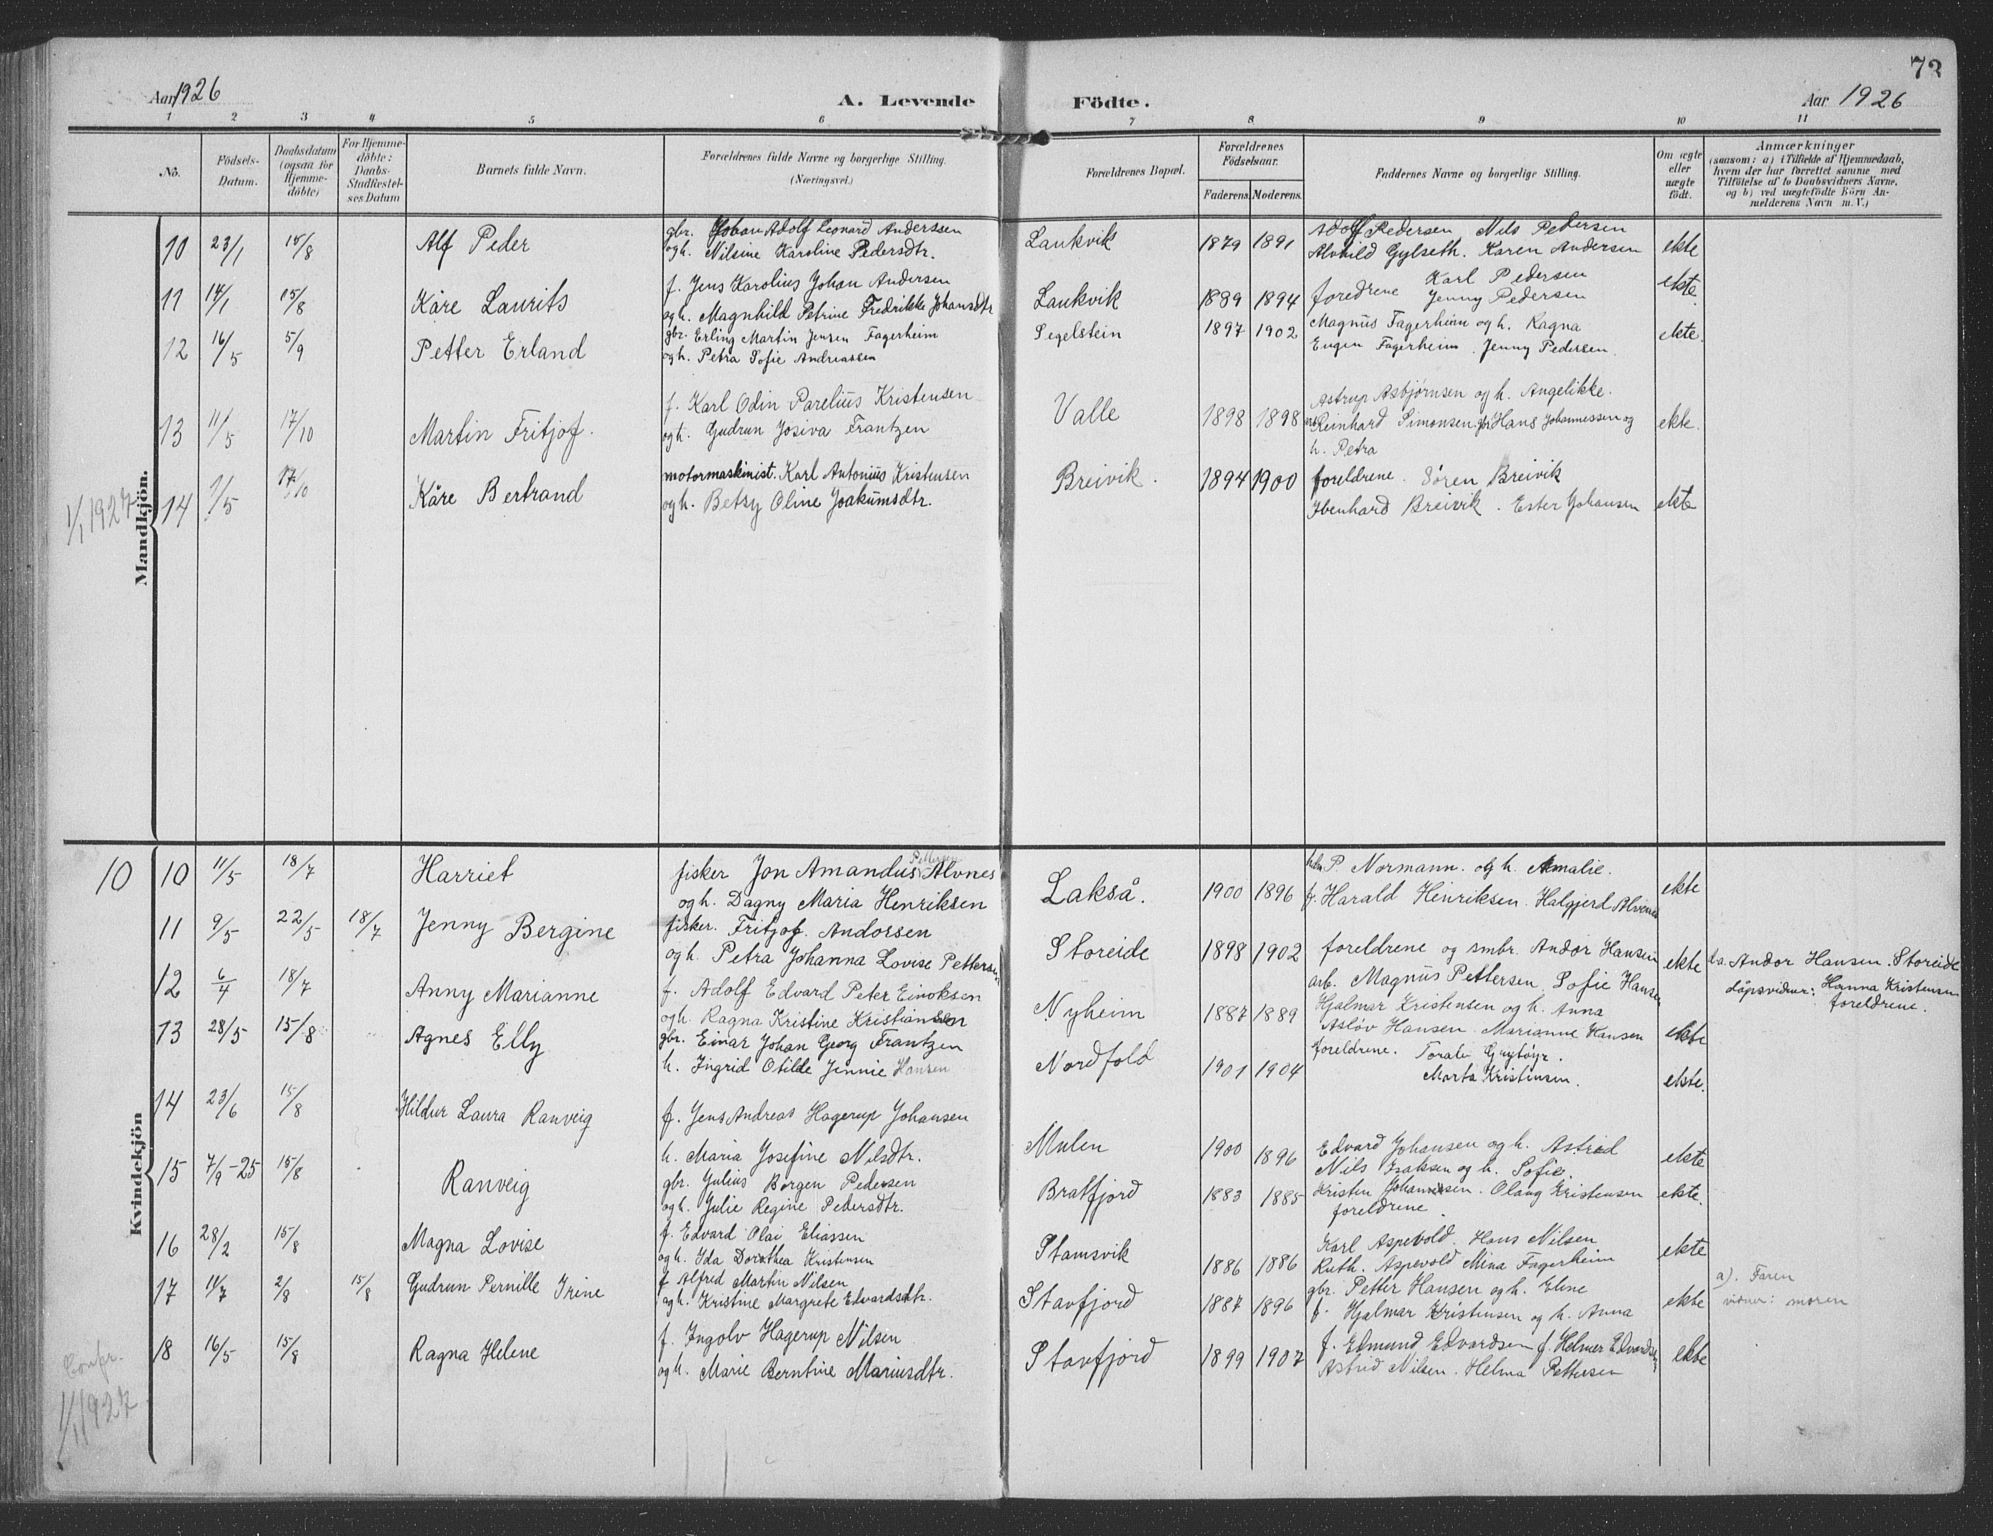 73
Aar 1926
A. Levende
Födte.
Aar 1926
1 2 3 4 5 6 7 8 9 10 11
No.
Födsels-Datum.
Daabsdatum (ogsaa for Hjemmedöbte)
For Hjemmedöbte: Daabs-Stadfæstelses Datum
Barnets fulde Navn.
Forældrenes fulde Navne og borgerlige Stilling. (Næringsvei.)
Forældrenes Bopæl.
Forældrenes Födselsaar.
Faderens. Moderens.
Faddernes Navne og borgerlige Stilling.
Om ægte eller uægte födt.
Anmærkninger
(saasom: a) i Tilfælde af Hjemmedaab, hvem der har forrettet samme med Tilföielse af to Daabsvidners Navne, og b) ved uægtefödte Börn Anmelderens Navn m. V.)
Mandkjön.
10 23/1 15/8 Alf Peder gbr. Johan Adolf Leonard Anderssen Laukvik 1879 1891 Adolf Pedersen Nils Pedersen ekte
og h. Nilsine Karoline Pedersdtr. Alvhild Gylseth. Karen Andersen
11 14/1 15/8 Kåre Laurits f. Jens Karolius Johan Andersen Laukvik 1889 1894 foredrene Karl Pedersen ekte.
og h. Magnhild Petrine Fredrikke Johansdtr Jenny Pedersen
12 16/5 5/9 Petter Erland gbr. Erling Martin Jensen Fagerheim Segelstein 1897 1902 Magnus Fagerheim og h. Ragna ekte.
og h. Petra Sofie Andreassen Eugen Fagerheim. Jenny Pedersen.
13 11/5 17/10 Martin Fritjof. f. Karl Odin Parelius Kristensen Valle 1898 1898 Astrup Asbjørnsen og h. Angelikke. ekte.
og h. Gudrun Josiva Frantzen Reinhard Simonsen. Hans Johannessen og
h. Petra
1/1 1927
14 1/5 17/10 Kåre Bertrand motormaskinist. Karl Antonius Kristensen Breivik. 1894 1900 foreldrene. Søren Breivik ekte
og h. Betsy Oline Joakumsdtr. Ibenhard Breivik. Ester Johansen
Kvindekjön
10 10 11/5 18/7 Harriet fisker Jon Amandus Pettersen Alvnes Lakså. 1900 1896 P. Normann. og h. Amalie. ekte
og h. Dagny Maria Henriksen f. Harald Henriksen. Halgjerd Alvenes
11 9/5 22/5 18/7 Jenny Bergine fisker. Fritjof. Andorsen Storeide 1898 1902 foreldrene og smbr. Andor Hansen ekte Andor Hansen. Storeide
og h. Petra Johanna Lovise Pettersen arb. Magnus Pettersen. Sofie Hansen dåpsvidner: Hanna Kristensen
foreldrene.
12 6/4 18/7 Anny Marianne f. Adolf Edvard Peter Einoksen Nyheim 1887 1889 Hjalmar Kristensen og h. Anna ekte
og h. Ragna Kristine Kristiansen Asløv Hansen. Marianne Hansen
13 28/5 15/8 Agnes Elly gbr. Einar Johan Georg Frantzen Nordfold 1901 1904 foreldrene. ekte.
h. Ingrid Otilde Jennie Hansen Marta Kristensen.
14 23/6 15/8 Hildur Laura Ranveig f. Jens Andreas Hagerup Johansen Mulen 1900 1896 Edvard Johansen og h. Astrid ekte
h. Maria Josefine Nilsdtr. Nils Isaksen og h. Sofie.
15 7/9-25 15/8 Ranveig gbr. Julius Borgen Pedersen Bratfjord 1883 1885 Kristen Johansen. Olaug Kristensen ekte.
og h. Julie Regine Pedersdtr. foreldrene.
16 28/2 15/8 Magna Lovise f. Edvard Olai Eliassen Stamsvik 1886 1886 Karl Aspevold. Hans Nilsen ekte
og h. Ida Dorothea Kristensen Ruth. Aspevold Mina Fagerheim
17 11/7 2/8 15/8 Gudrun Pernille Irine f. Alfred Martin Nilsen Stavfjord 1887 1896 gbr. Petter Hansen og h. Eline ekte a). Faren
og h. Kristine Margrete Edvardsdtr. f. Hjalmar Kristensen og h. Anna vidner: moren
18 16/5 15/8 Ragna Helene f. Ingolv Hagerup Nilsen Stavfjord 1899 1907 f. Edmund Edvardsen f. Helmer Edvardsen ekte
og h. Marie Berntine Mariusdtr. Astrid Nilsen. Helma Pettersen
Confr.
1/1 1927